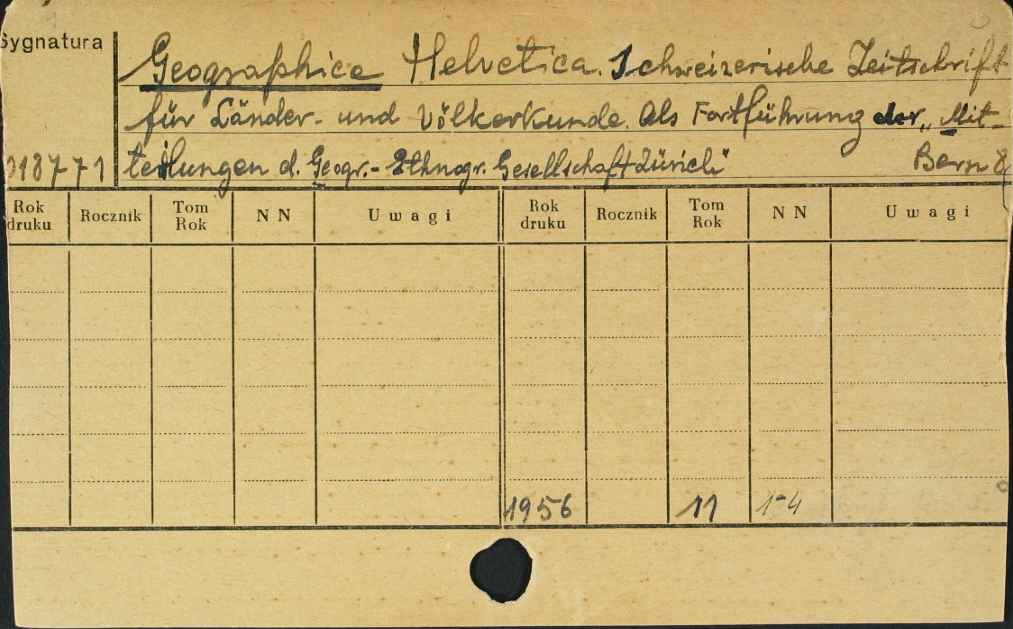 Sygnatura
Geographica Helvetica. Schweizerische Zeitschrift
für Länder- und Völkerkunde. Als Fortführung der „Mit-
018771 teilungen d. Geogr.- Ethnogr. Gesellschaft Zürich" Bern 8
Rok druku Rocznik Tom Rok N N Uwagi Rok druku Rocznik Tom Rok N N Uwagi
1956 11 1-4